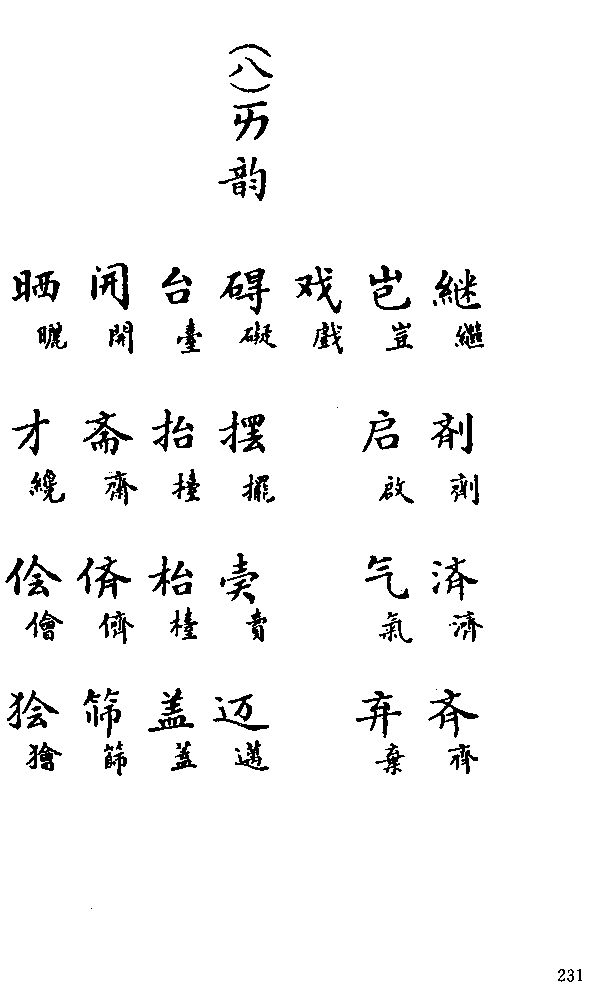 継 繼 剤 劑 済 濟 斉 齊
岂 豈 启 啟 气 氣 弃 棄
戏 戲
(八)ㄞ韵
碍 礙 摆 擺 卖 賣 迈 邁
台 臺 抬 擡 枱 檯 盖 蓋
𫔭 開 斋 齋 侪 儕 筛 篩
晒 曬 才 纔 侩 儈 狯 獪
231